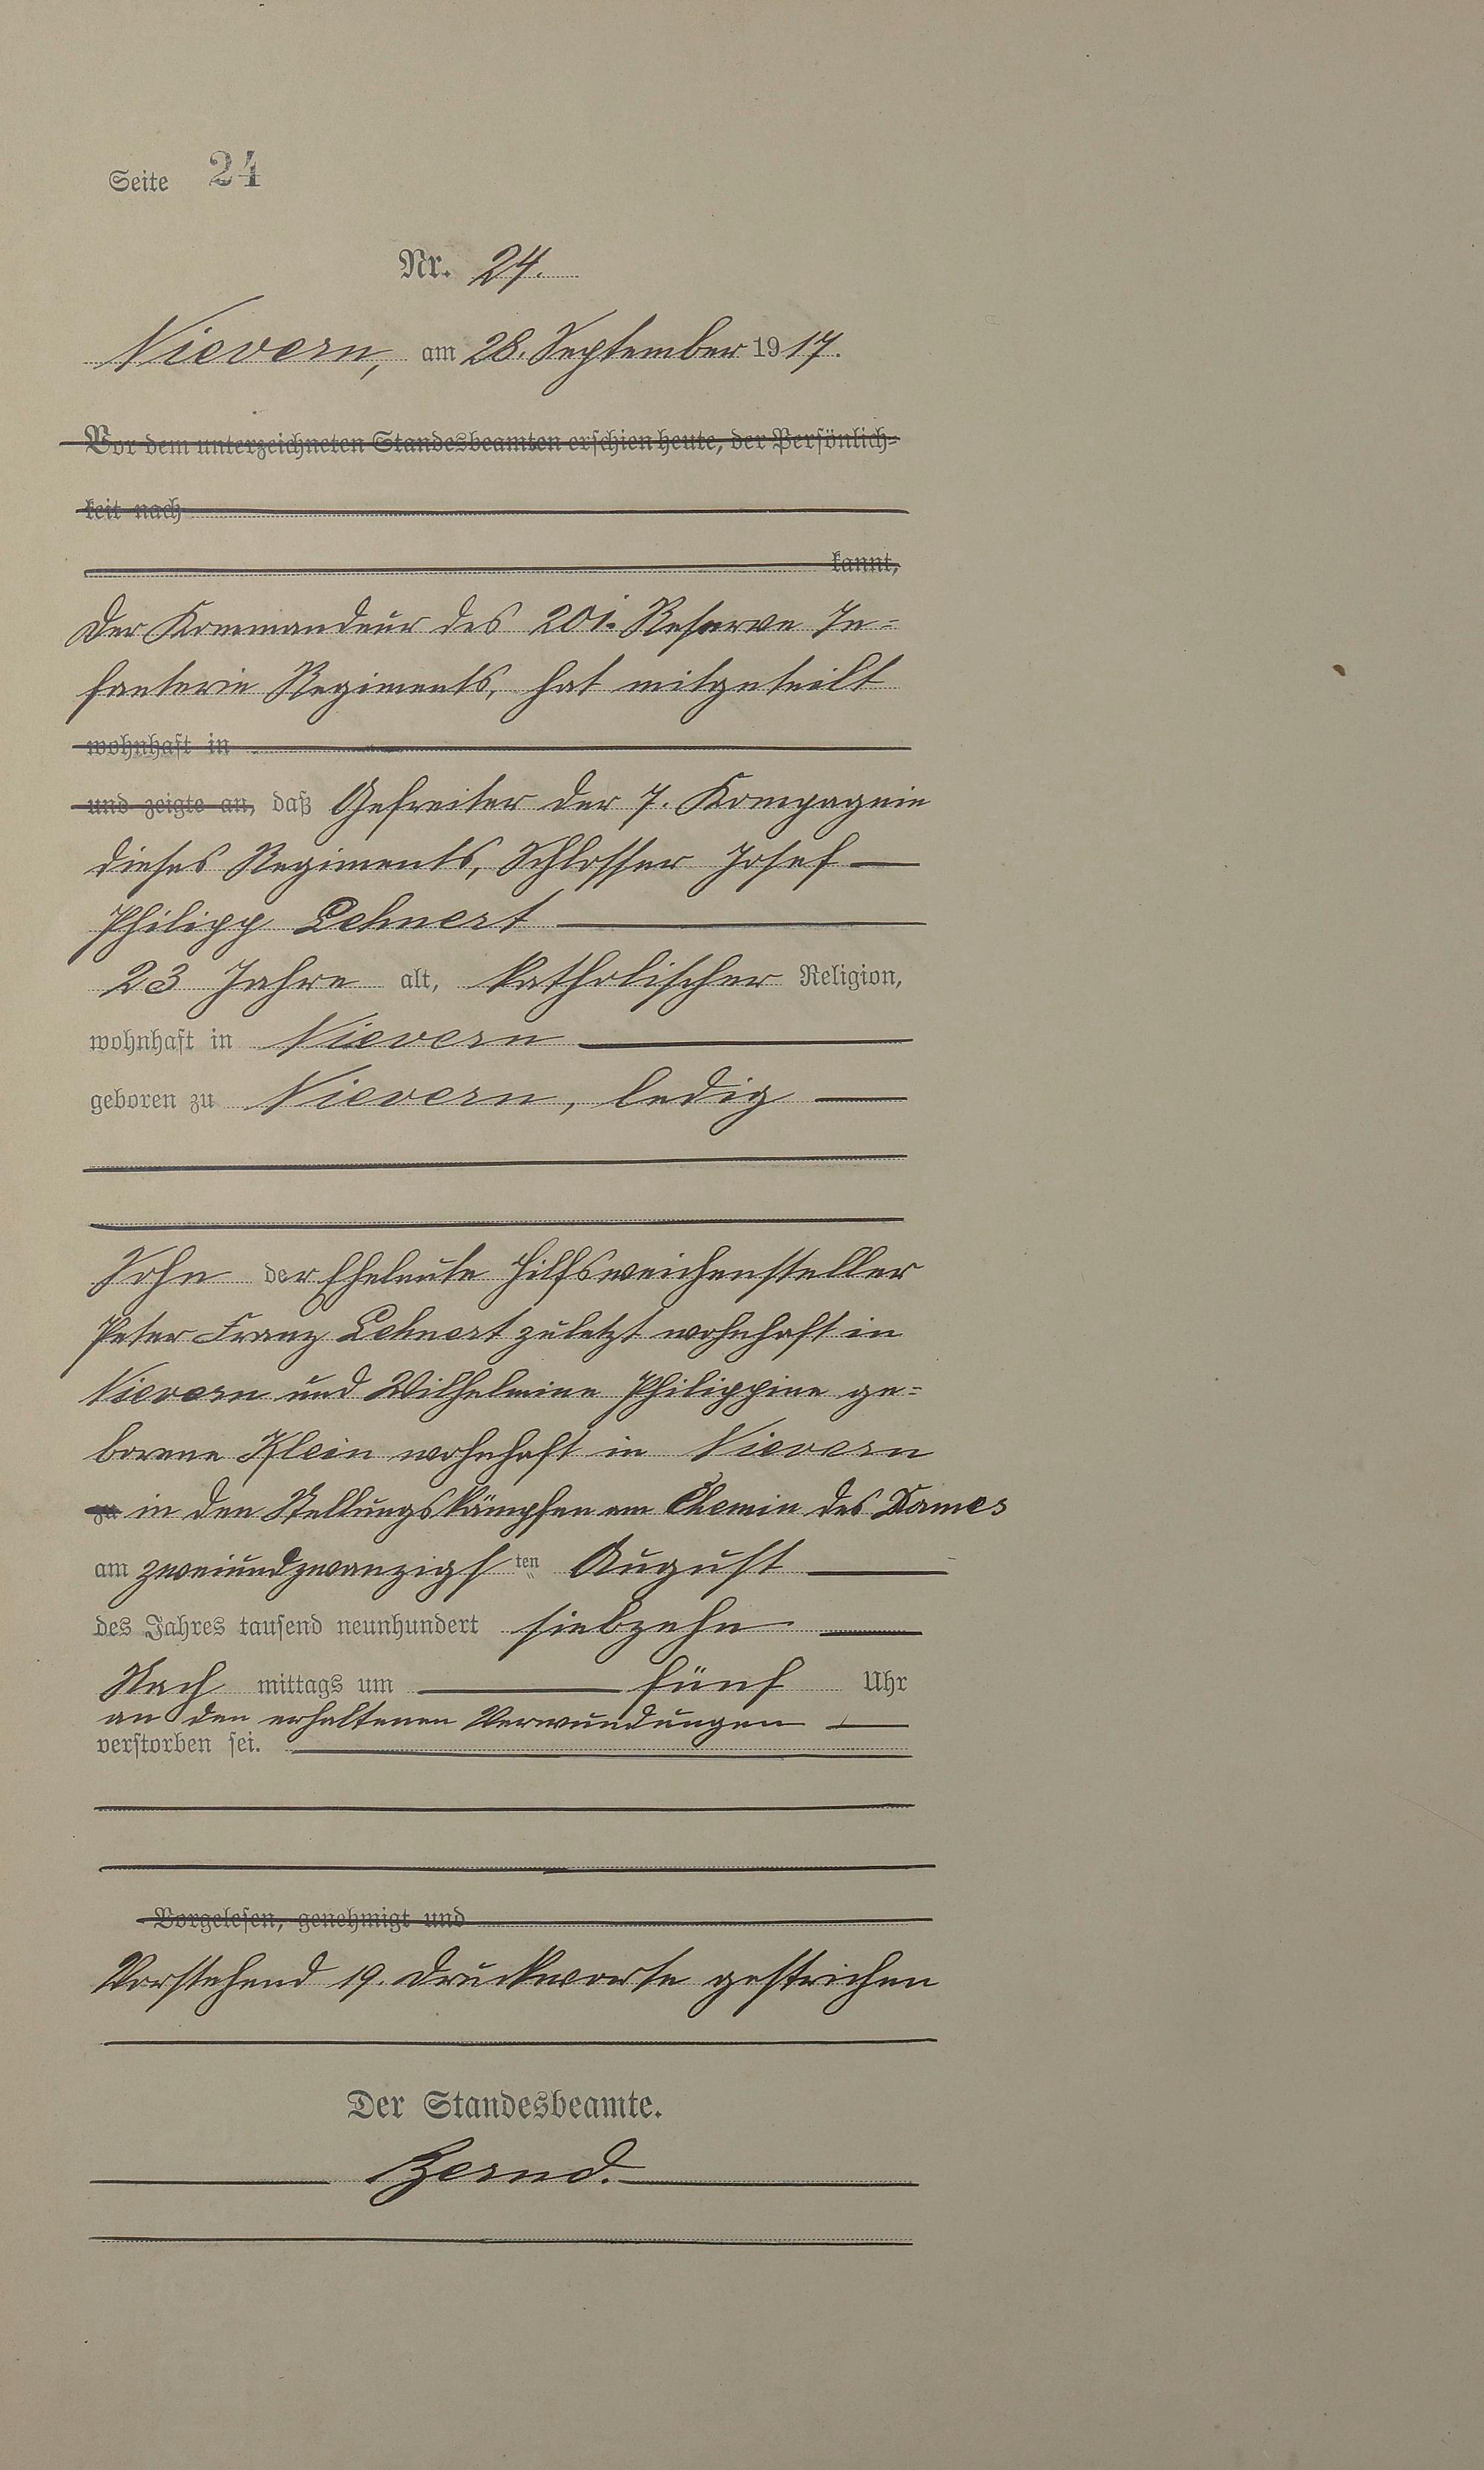 Seite 24
Nr. 24.
Nievern, am 28. September 1917.
Vor dem unterzeichneten Standesbeamten erschien heute, der Persönlich-
keit nach
kannt,
Der Kommandeur des 201. Reserve In-
fanterie Regiments, hat mitgeteilt
wohnhaft in
und zeigte an, daß Gefreiter der 7. Kompagnie
dieses Regiments, Schlosser Josef
Philipp Lehnert
23 Jahre alt, katholischer Religion,
wohnhaft in Nievern
geboren zu Nievern, ledig
Sohn der Eheleute Hilfsweichensteller
Peter Franz Lehnert zuletzt wohnhaft in
Nievern und Wilhelmine Philippine ge-
borene Klein wohnhaft in Nievern
zu in den Stellungskämpfen am Chemin des Dames
am zweiundzwanzigsten August
des Jahres tausend neunhundert siebzehn
Nach mittags um fünf Uhr
an den erhaltenen Verwundungen
verstorben sei.
Vorgelesen, genehmigt und
Vorstehend 19. Druckworte gestrichen
Der Standesbeamte.
Zernd.